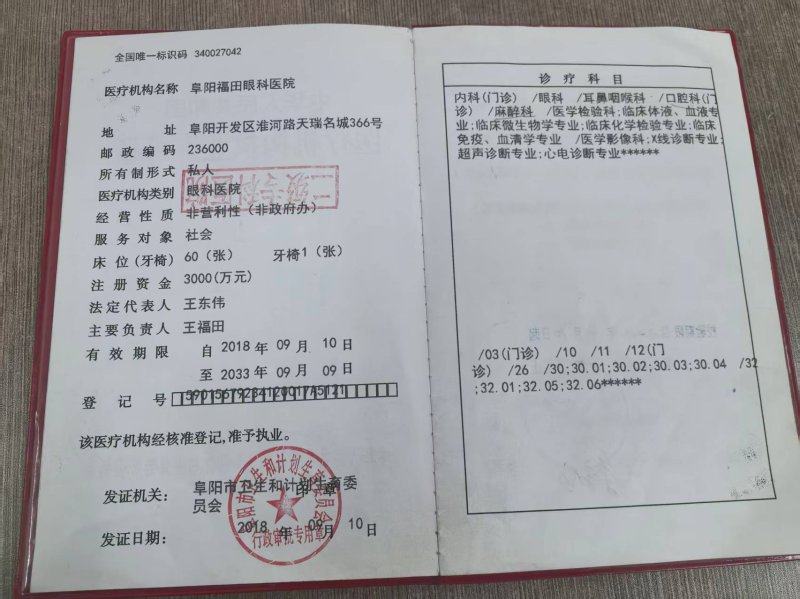 全国唯一标识码 340027042
医疗机构名称 阜阳福田眼科医院
地址 阜阳开发区淮河路天瑞名城366号
邮政编码 236000
所有制形式 私人
二级专科医院
医疗机构类别 眼科医院
经营性质 非营利性（非政府办）
服务对象 社会
床位(牙椅) 60（张） 牙椅1（张）
注册资金 3000(万元)
法定代表人 王东伟
主要负责人 王福田
有效期限 自 2018 年 09 月 10 日
至 2033 年 09 月 09 日
登记号
该医疗机构经核准登记,准予执业。
发证机关: 阜阳市卫生和计划生育委
员会 印章
阜阳市卫生和计划生育委员会
行政审批专用章
发证日期: 2018 年 09 月 10 日
诊疗科目
内科(门诊) /眼科 /耳鼻咽喉科 /口腔科(门
诊) /麻醉科 /医学检验科;临床体液、血液专
业;临床微生物学专业;临床化学检验专业;临床
免疫、血清学专业 /医学影像科;X线诊断专业;
超声诊断专业;心电诊断专业******
/03(门诊) /10 /11 /12(门
诊) /26 /30;30.01;30.02;30.03;30.04 /32
;32.01;32.05;32.06******